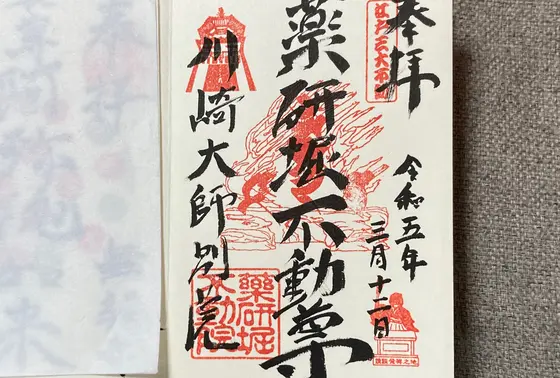 奉拝
江戸三大不動
令和五年
三月十二日
薬研堀不動尊
川崎大師別院
薬研堀
不動院